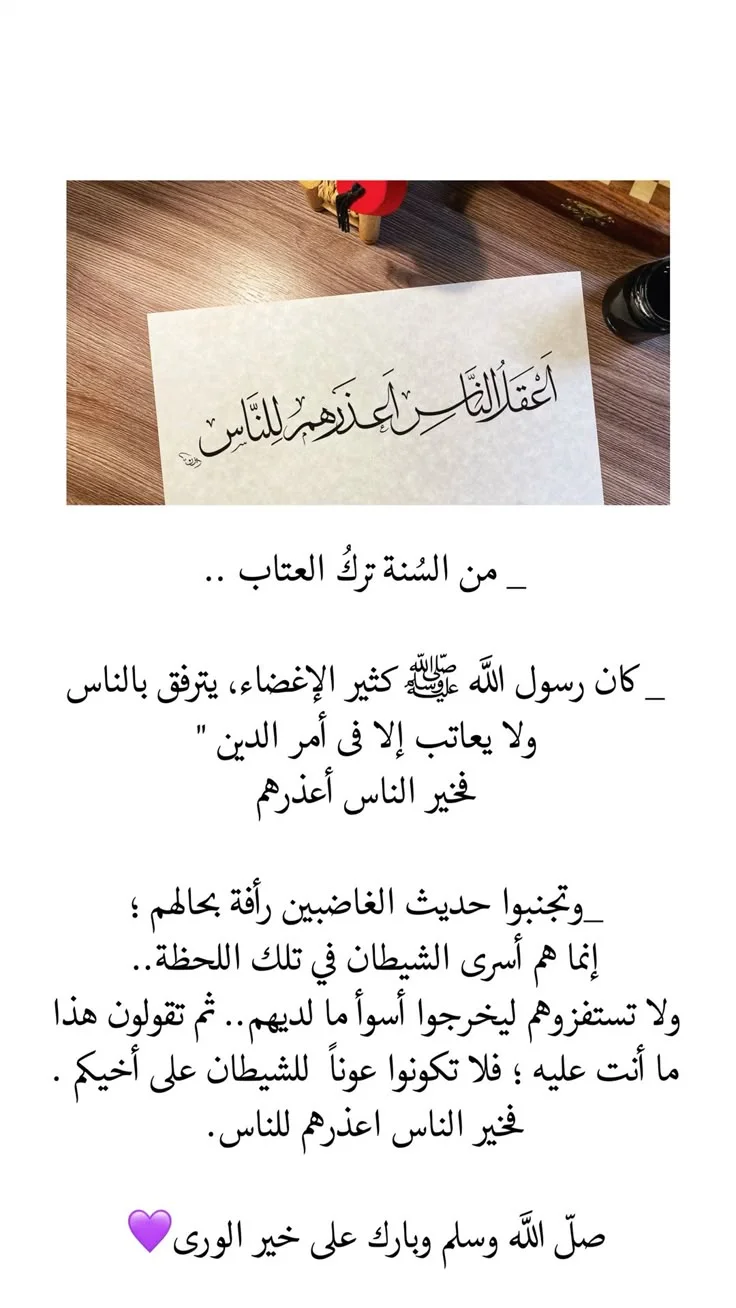 أَعْقَلُ النَّاسِ أَعذَرُهم لِلنَّاس
_ من السُنة تركُ العتاب ..
_ كان رسول اللَّه ﷺ كثير الإغضاء، يترفق بالناس
ولا يعاتب إلا فى أمر الدين "
فخير الناس أعذرهم
_وتجنبوا حديث الغاضبين رأفة بحالهم ؛
إنما هم أسرى الشيطان في تلك اللحظة..
ولا تستفزوهم ليخرجوا أسوأ ما لديهم.. ثم تقولون هذا
ما أنت عليه ؛ فلا تكونوا عوناً للشيطان على أخيكم .
فخير الناس اعذرهم للناس.
صلّ اللَّه وسلم وبارك على خير الورى💜